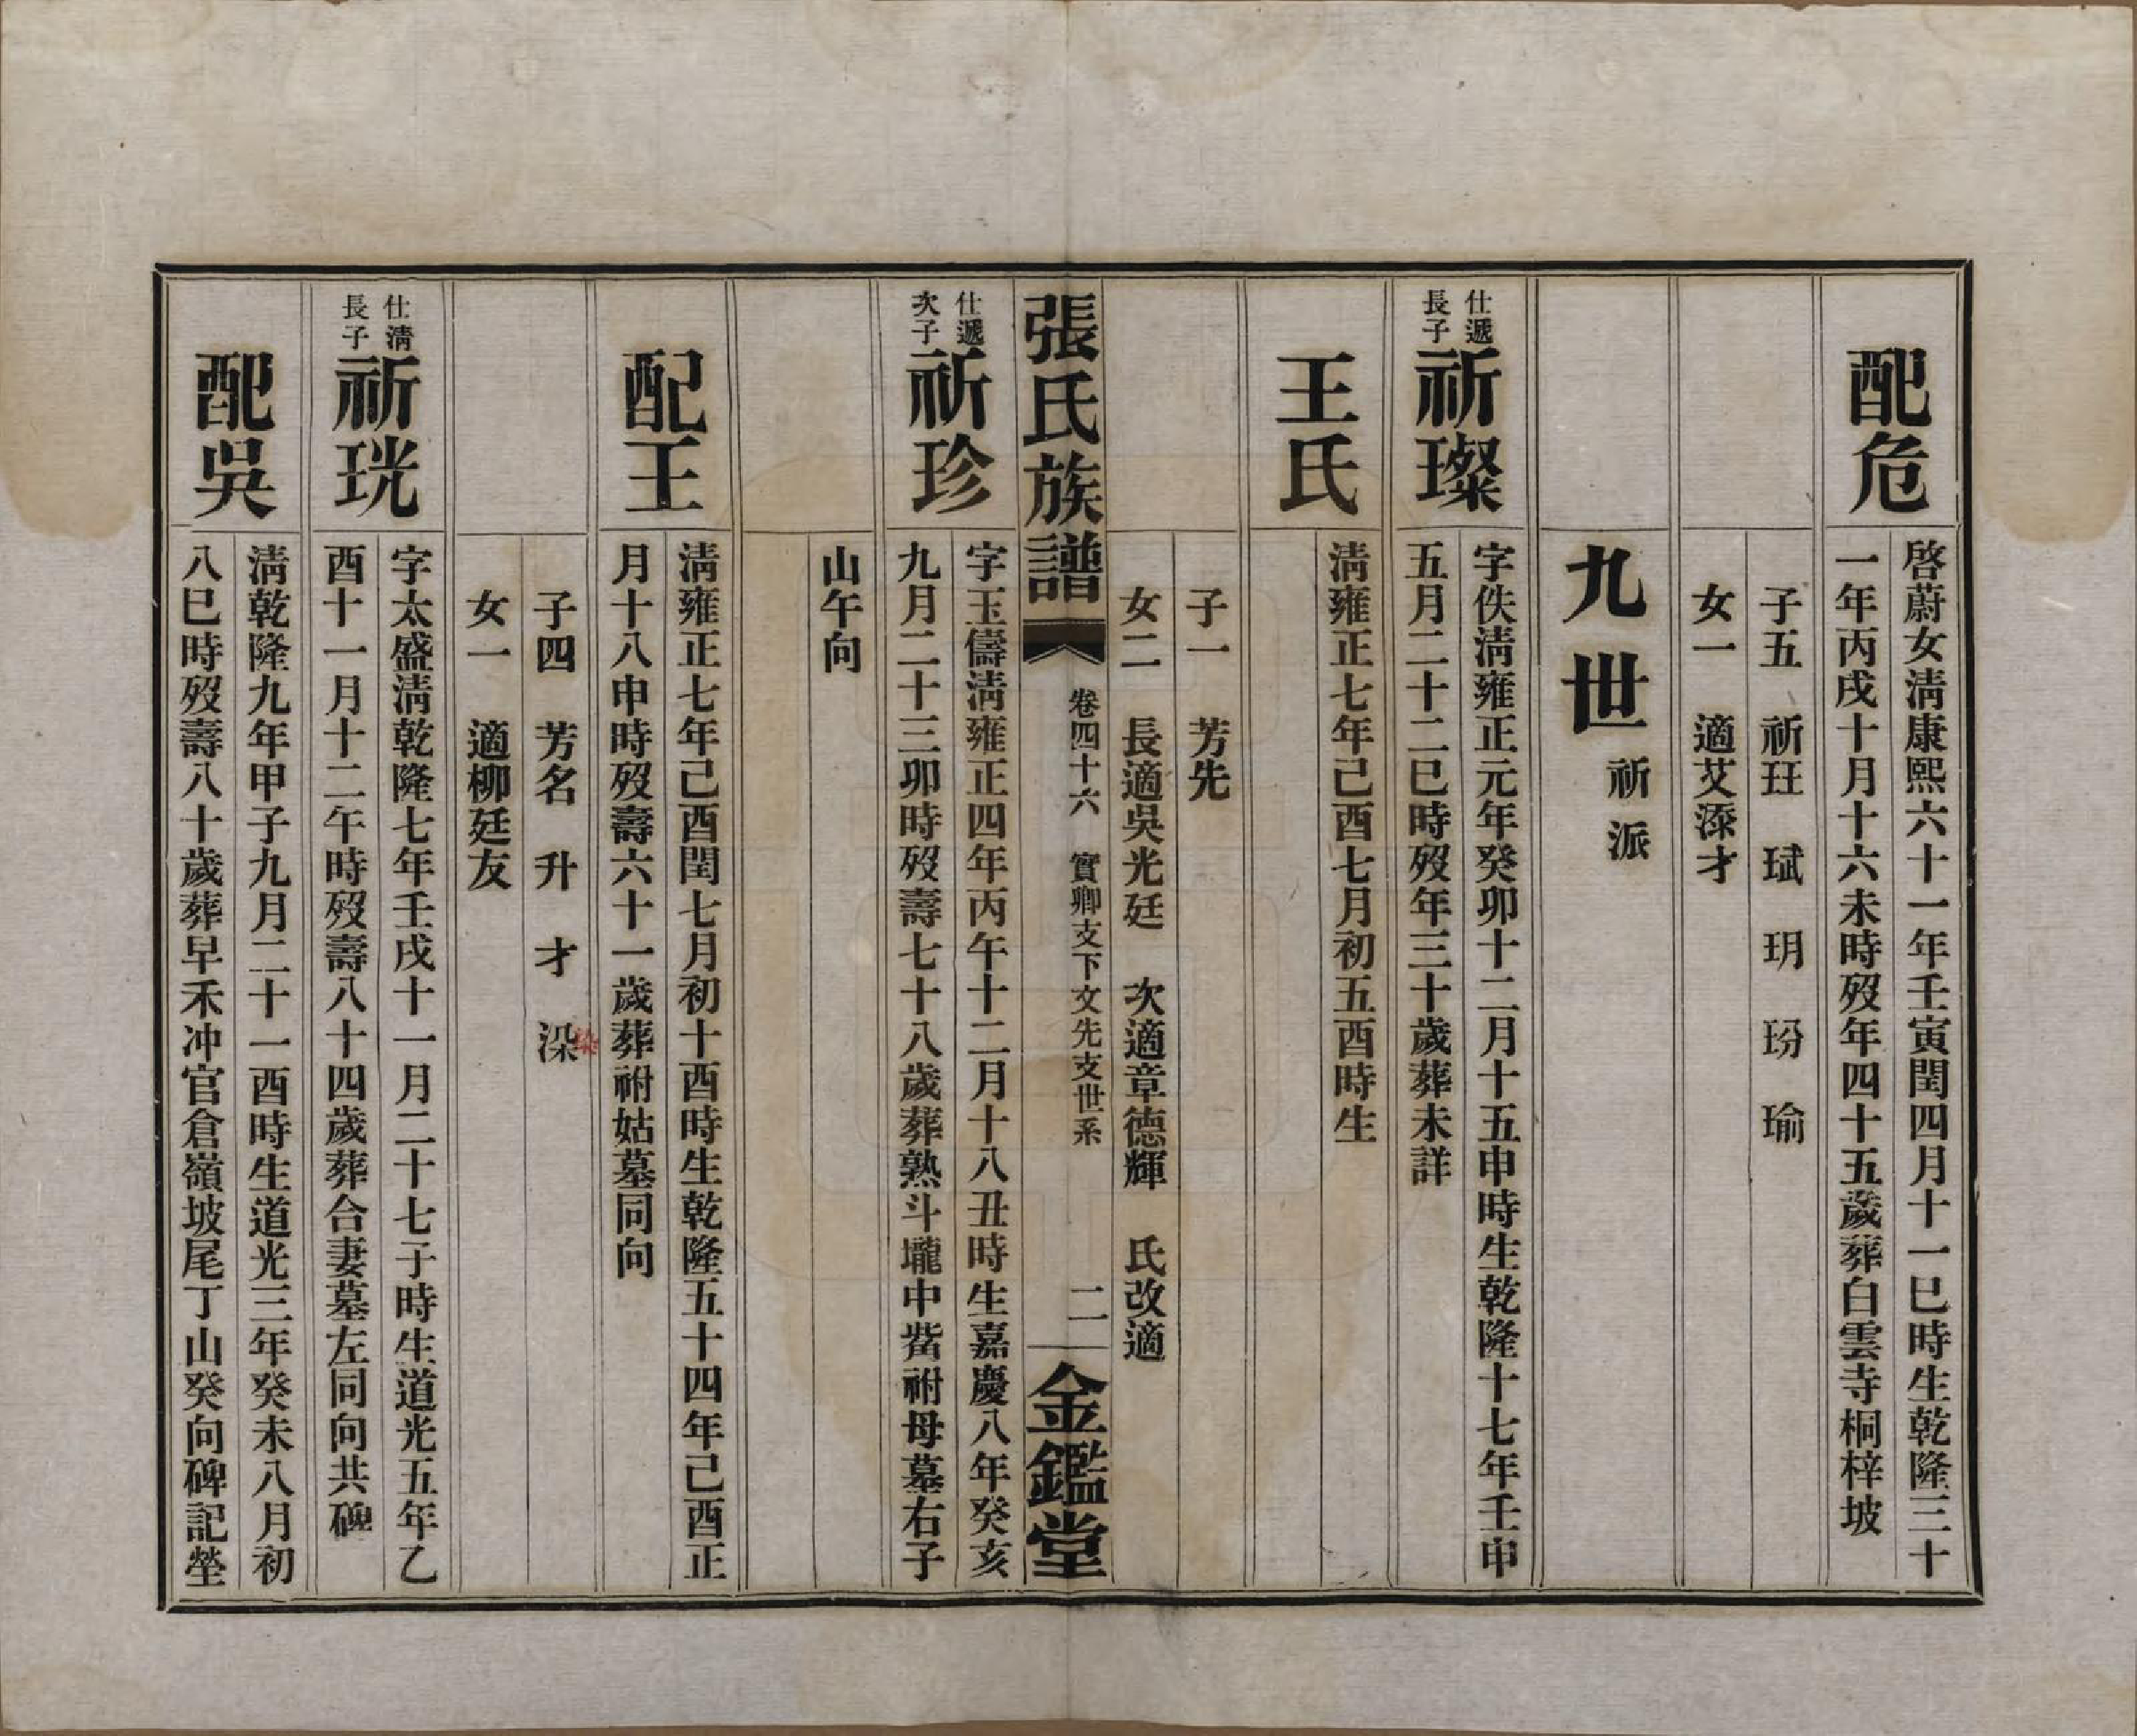 配危
啓蔚女淸康熙六十一年壬寅閏四月十一巳時生乾隆三十
一年丙戌十月十六未時歿年四十五歲葬白雲寺桐梓坡
子五 祈玨 珷 玥 玢 瑜
女一 適艾溙才
九世 祈派
仕遞長子
祈璨
字佚淸雍正元年癸卯十二月十五申時生乾隆十七年壬申
五月二十二巳時歿年三十歲葬未詳
王氏
淸雍正七年己酉七月初五酉時生
子一 芳先
女二 長適吳光廷 次適章德輝 氏改適
張氏族譜
卷四十六 實卿支下文先支世系
二
金鑑堂
仕遞次子
祈珍
字玉儔淸雍正四年丙午十二月十八丑時生嘉慶八年癸亥
九月二十三卯時歿壽七十八歲葬熟斗壠中嘴祔母墓右子
山午向
配王
淸雍正七年己酉閏七月初十酉時生乾隆五十四年己酉正
月十八申時歿壽六十一歲葬祔姑墓同向
子四 芳名 升 才 染
染
女一 適柳廷友
仕淸長子
祈珖
字太盛淸乾隆七年壬戌十一月二十七子時生道光五年乙
酉十一月十二午時歿壽八十四歲葬合妻墓左同向共碑
配吳
淸乾隆九年甲子九月二十一酉時生道光三年癸未八月初
八巳時歿壽八十歲葬早禾冲官倉嶺坡尾丁山癸向碑記塋